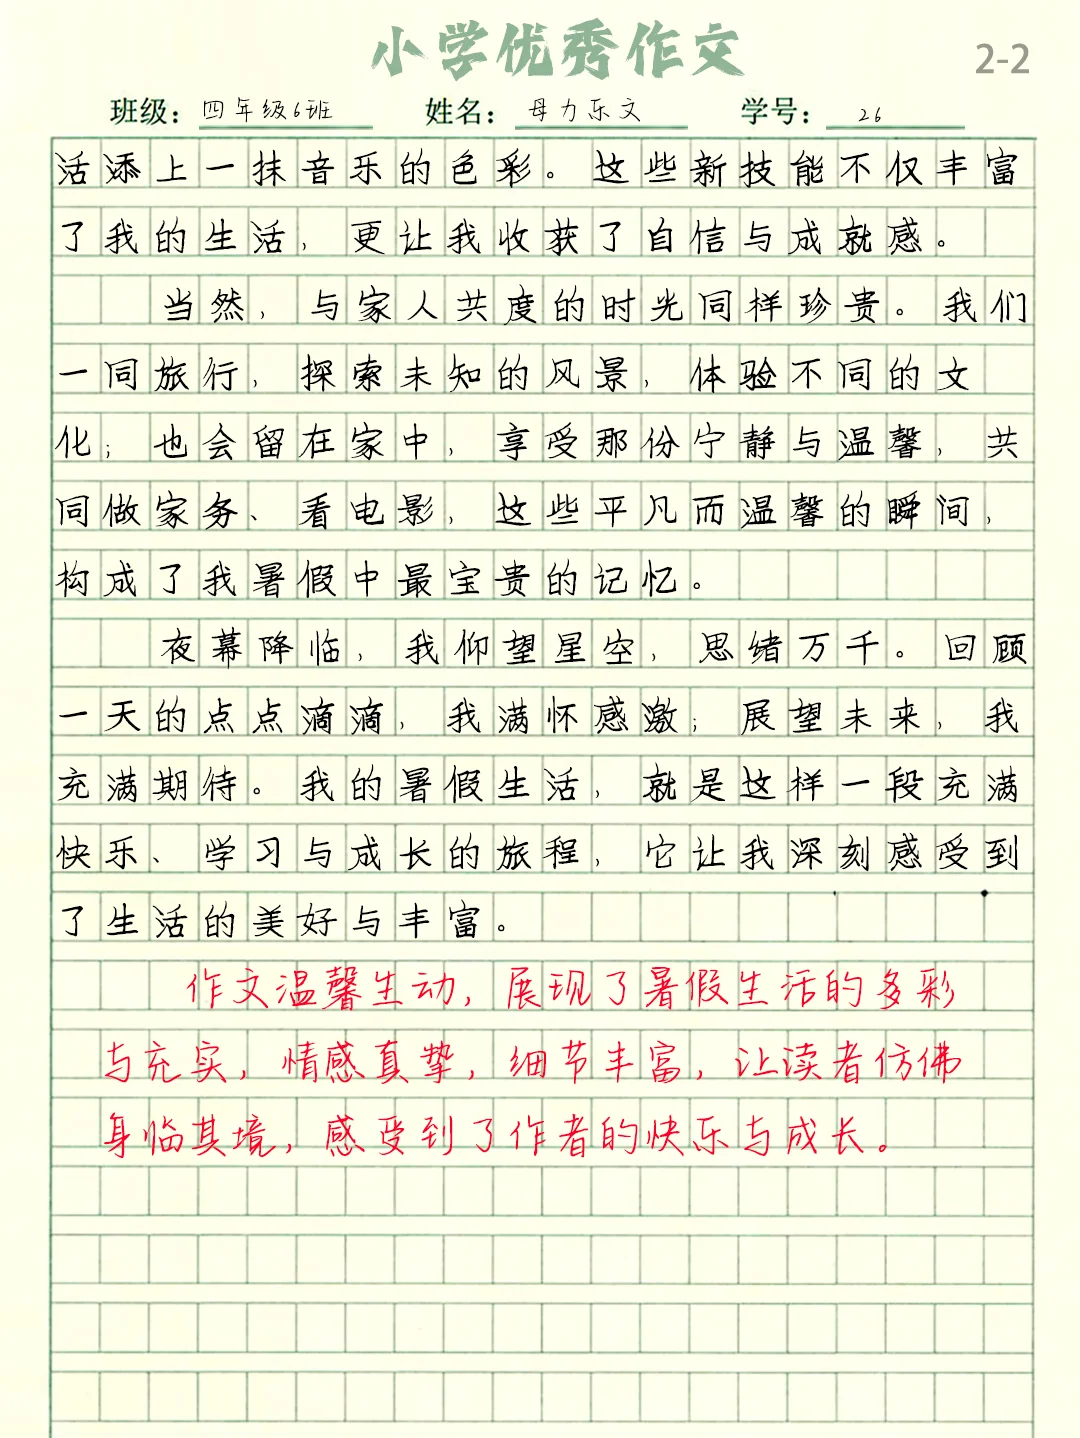 小学优秀作文
2-2
班级：四年级6班 姓名：母力乐文 学号：26
活添上一抹音乐的色彩。这些新技能不仅丰富
了我的生活，更让我收获了自信与成就感。
当然，与家人共度的时光同样珍贵。我们
一同旅行，探索未知的风景，体验不同的文
化；也会留在家中，享受那份宁静与温馨，共
同做家务、看电影，这些平凡而温馨的瞬间，
构成了我暑假中最宝贵的记忆。
夜幕降临，我仰望星空，思绪万千。回顾
一天的点点滴滴，我满怀感激；展望未来，我
充满期待。我的暑假生活，就是这样一段充满
快乐、学习与成长的旅程，它让我深刻感受到
了生活的美好与丰富。
作文温馨生动，展现了暑假生活的多彩
与充实，情感真挚，细节丰富，让读者仿佛
身临其境，感受到了作者的快乐与成长。